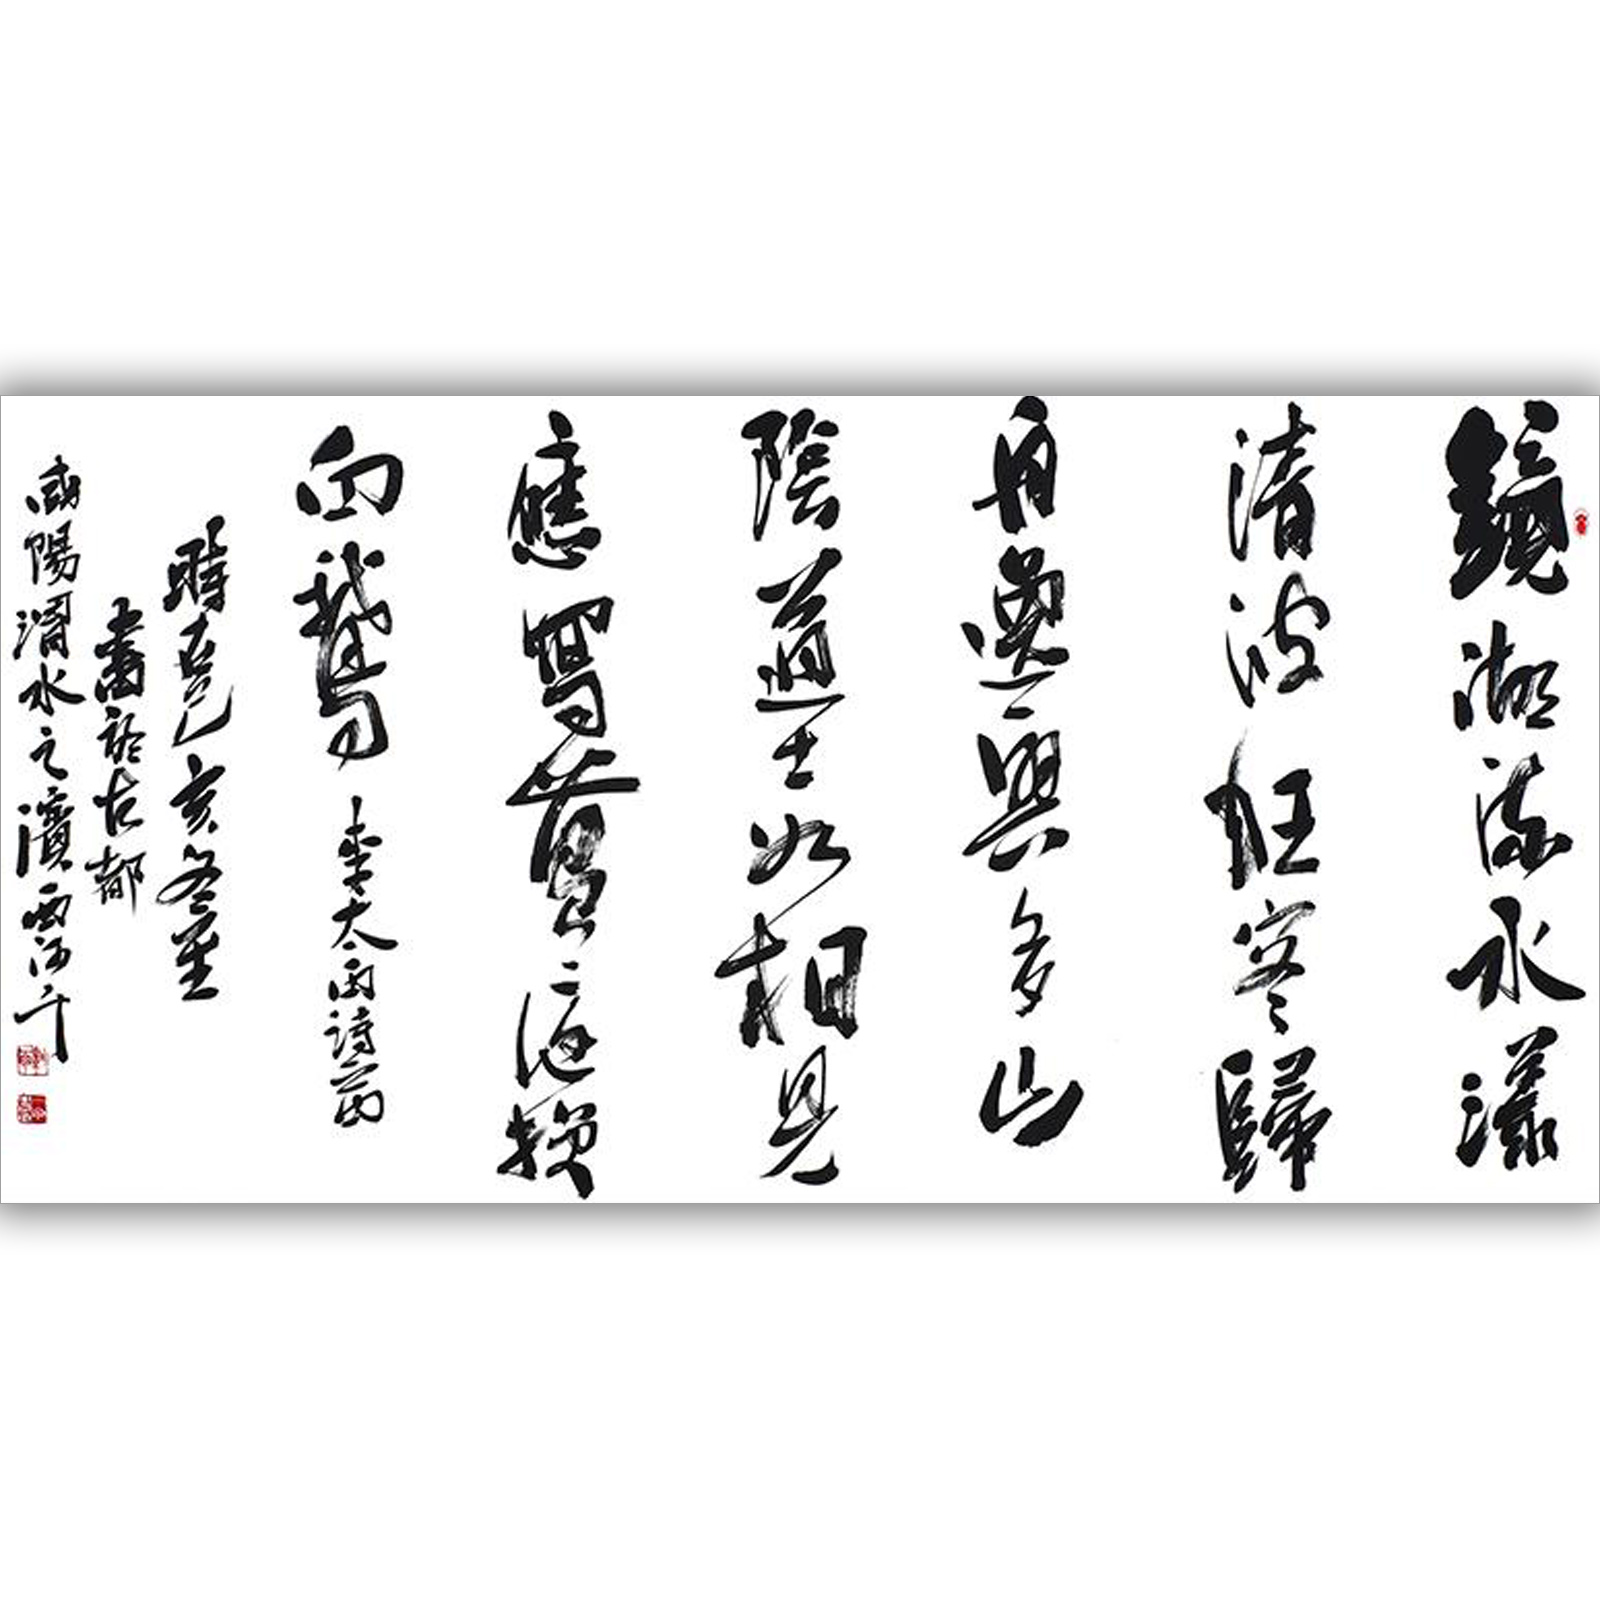 鏡湖流水漾
清波狂客歸
舟逸興多山
陰道士如相見
應寫黃庭換
白鵝 李太白詩一首
時在己亥冬至
書於古都
咸陽渭水之濱西河